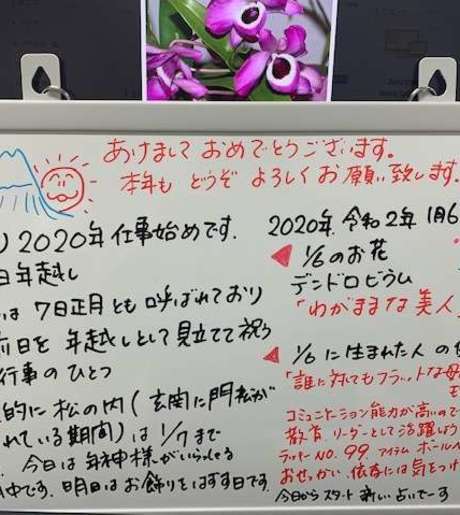 あけまして おめでとうございます。
本年も どうぞ よろしくお願い致します。
2020年 仕事始めです.
日年越し
は 7日正月とも 呼ばれており
前日を 年越しとして見立てて 祝う
行事の ひとつ
的に 松の内 ( 玄関に 門松が
れている期間) は 1/7まで
今日は 年神様がいらっしる
中です. 明日は お飾りを はずす日です.
2020年. 令和2年 1月6
◀ 1/6の お花
デンドロビウム
「わがままな美人
◀ 1/6 に 生まれた人 の
「誰に対してもフラットな母
コミュニケーション能力が高いので
教育. リーダーとして活躍しよう
ラッキーNO. 99. アイテム ボールペ
おせっかい. 依存には気をつけ
今日から スタート 新しい 占いでーす